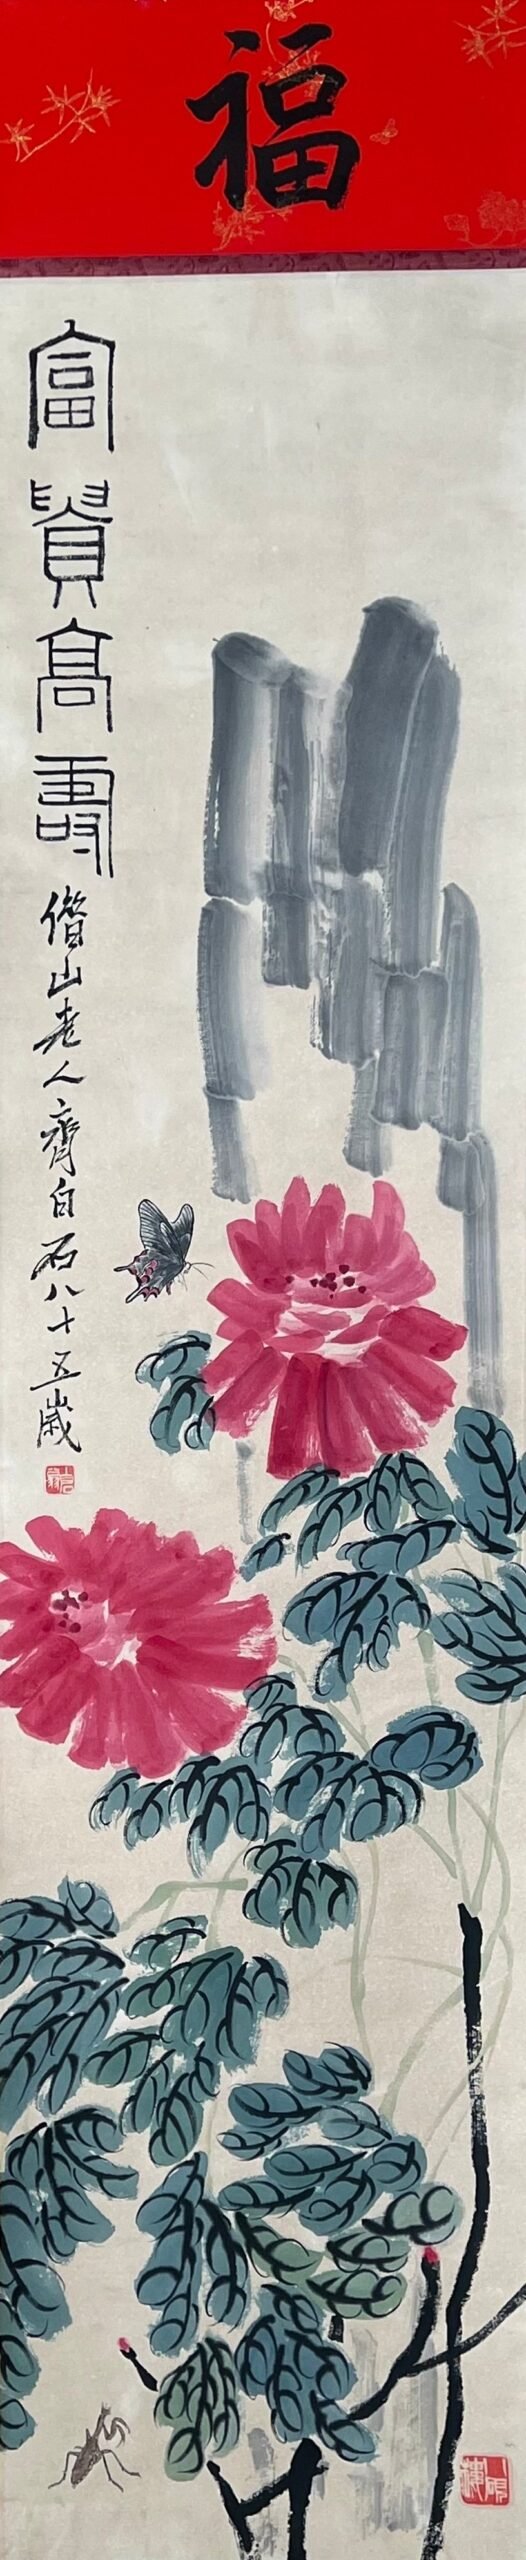 福
富貴高壽
借山老人齊白石八十五歲